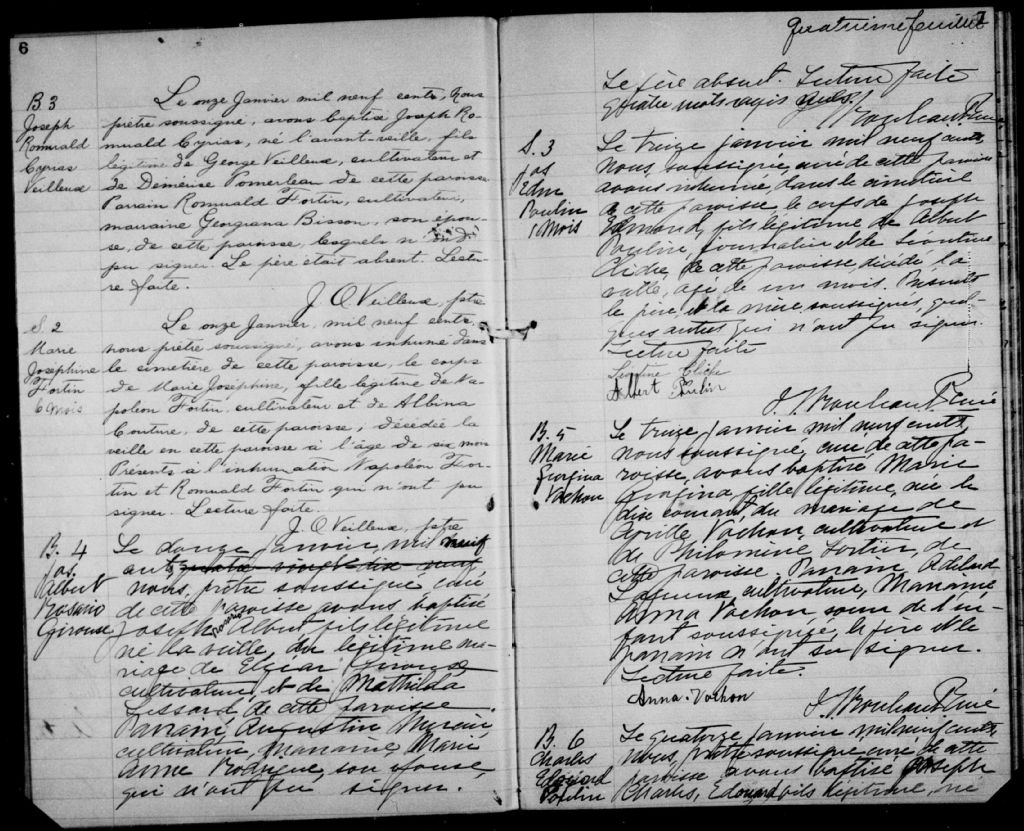 6
B 3
Joseph
Romuald
Cyrias
Veilleux
Le onze Janvier mil neuf cents, Nous
prêtre soussigné, avons baptisé Joseph Ro-
muald Cyrias, né l'avant-veille, fils
légitime de George Veilleux, cultivateur et
de Démérise Pomerleau de cette paroisse
Parrain Romuald Fortin, cultivateur,
marraine Georgiana Bisson, son épou-
se, de cette paroisse, lesquels n'ont
pu signer. Le père était absent. Lectu-
re faite.
J. O Veilleux, ptre
S. 2
Marie
Josephine
Fortin
6 Mois
Le onze Janvier, mil neuf cents,
nous prêtre soussigné, avons inhumé dans
le cimetière de cette paroisse, le corps
de Marie Joséphine, fille légitime de Na-
poléon Fortin, cultivateur et de Albina
Couture, de cette paroisse, décédée la
veille en cette paroisse à l'âge de six mois
Présents à l'inhumation Napoléon For-
tin et Romuald Fortin qui n'ont pu
signer. Lecture faite.
J. O Veilleux, ptre
B. 4
Jos.
Albert
Rosario
Giroux
Le douze Janvier, mil neuf
cent quatre vingt dix neuf
nous, prêtre soussigné, curé
de cette paroisse avons baptisé
Joseph Albert fils légitime
né la veille, du légitime ma-
riage de Elzéar Giroux
cultivateur, et de Mathilda
Lessard de cette paroisse.
Parrain, Augustin Mercier
cultivateur, Marraine Marie
Anne Rodrigue, son épouse,
qui n'ont pu signer.
7
quatrième feuillet
Le père absent. Lecture faite
Quatre mots rayés nuls.
S. 3
Jos
Edm
Poulin
1 Mois
Le treize janvier mil neuf cents,
Nous, soussigné, curé de cette paroisse
avons inhumé, dans le cimetière
de cette paroisse le corps de Joseph
Edmond, fils légitime de Albert
Poulin, journalier et de Léontine
Cliche, de cette paroisse, décédé l'a-
vant veille, agé de un mois. Présents
le père et la mère soussignés, quel-
ques autres qui n'ont pu signer.
Lecture faite
Léontine Cliche
Albert Poulin
B. 5
Marie
Géorgina
Vachon
Le treize janvier mil neuf cents,
nous soussigné, curé de cette pa-
roisse, avons baptisé Marie
Géorgina, fille légitime, née le
dix courant, du mariage de
Vachon, cultivateur et
de Philomène Fortin, de
cette paroisse. Parrain Adélard
cultivateur, Marraine
Anna Vachon soeur de l'en-
fant soussignée, le père et le
parrain n'ont su signer.
Lecture faite.
Anna Vachon
B. 6
Charles
Edouard
Poulin
Le quatorze janvier mil neuf cents,
Nous, prêtre soussigné curé de cette
paroisse avons baptisé Joseph
Charles, Edouard fils légitime, né